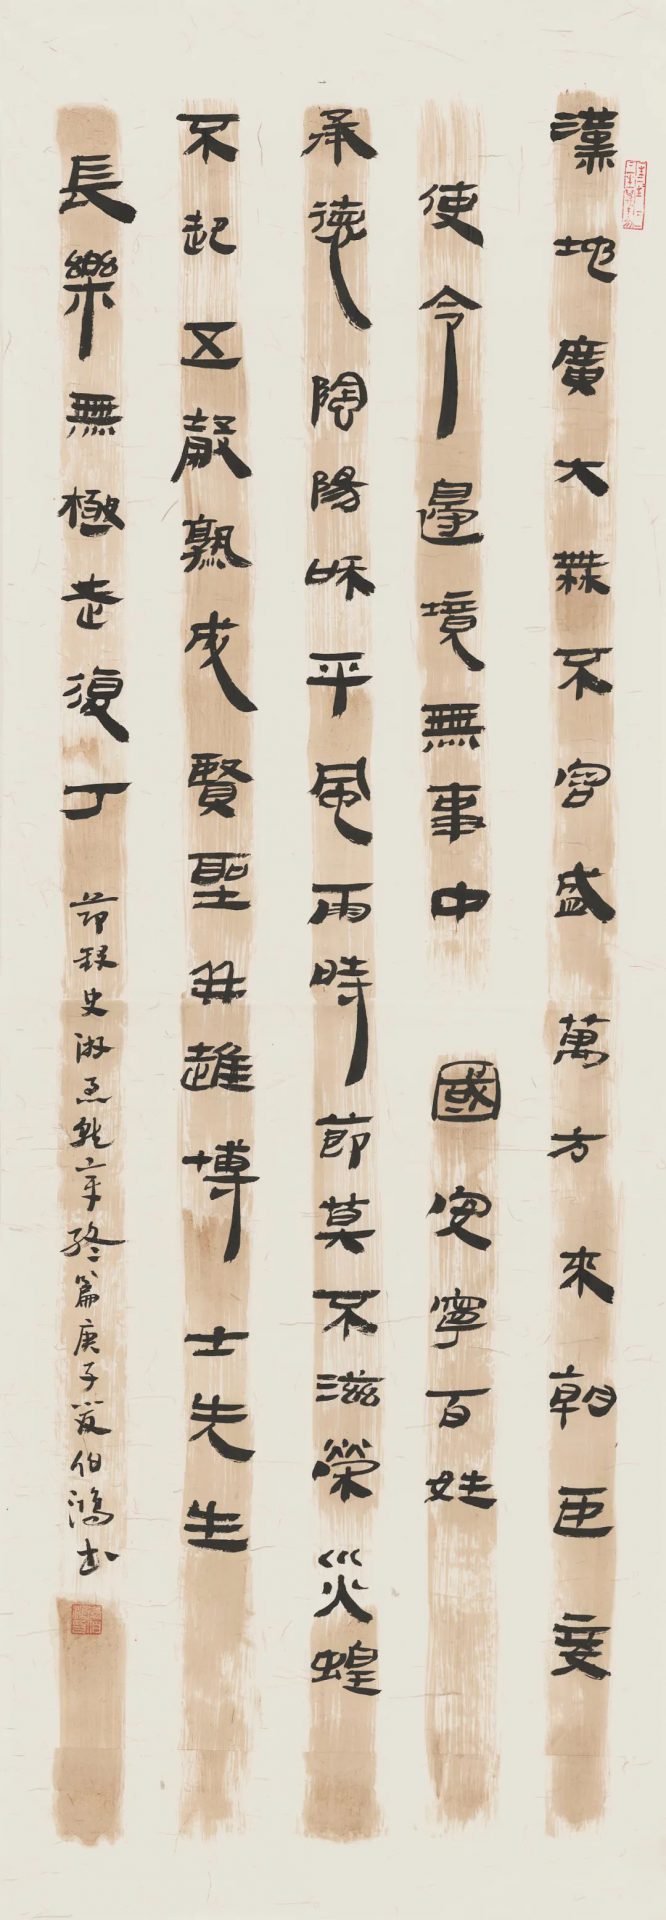 漢地廣大無不容盛萬方來朝臣妾
使令邊境無事中國安寧百姓
承德陰陽和平風雨時節莫不滋榮災蝗
不起五穀熟成賢聖並進博士先生
長樂無極老復丁
節録史游急就章終篇庚子夏伯鴻書